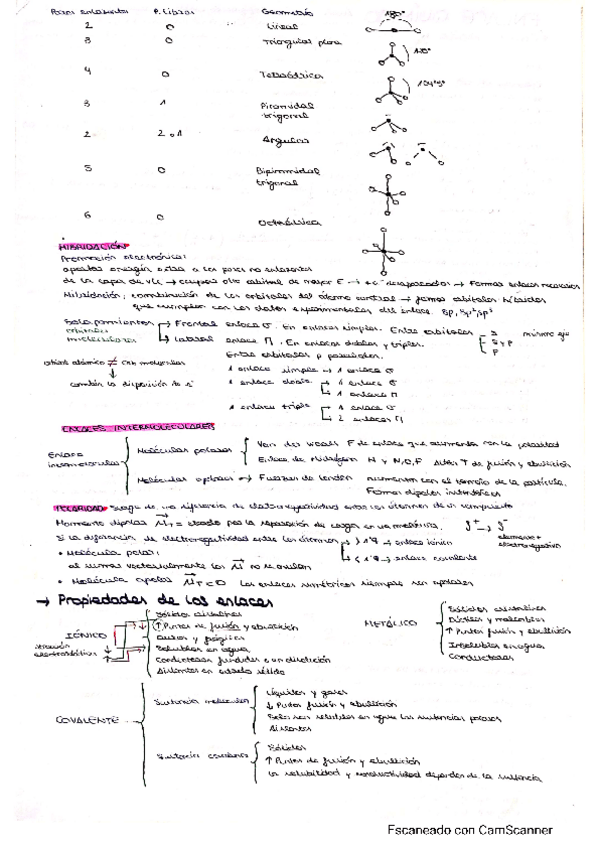 Pares enlazantes P. Libres Geometría
2 0 Lineal 180º
3 0 Triangular plana 120º
4 0 Tetraédrica 109'5º
3 1 Piramidal
trigonal
2 2 o 1 Angular
5 0 Bipiramidal
trigonal
6 0 Octaédrica
HIBRIDACIÓN
Promoción electrónica:
aportar energía extra a los pares no enlazantes
de la capa de vlc → ocupar otro orbital de mayor E → e- desapareados → Formar enlaces necesarios
Hibridación; combinación de los orbitales del átomo central → forma orbitales híbridos
que cumplen con los datos experimentales del enlace. sp, sp², sp³
Solapamientos → Frontal enlace σ. En enlaces simples. Entre orbitales s mismo eje
orbitales s y p
moleculares → lateral enlace Π. En enlaces dobles y triples. p
Entre orbitales p paralelos.
orbital atómico ≠ orb moleculares
1 enlace simple → 1 enlace σ
cambia la disposición de e-
1 enlace doble → 1 enlace σ
→ 1 enlace Π
1 enlace triple → 1 enlace σ
→ 2 enlaces Π
ENLACES INTERMOLECULARES
Enlace
intermolecular
Moléculas polares
Van der Waals F de enlace que aumenta con la polaridad
Enlace de Hidrógeno H y N, O, F Altos ↑ de fusión y ebullición
Moléculas apolares → Fuerzas de London aumentan con el tamaño de la partícula.
Forman dipolos instantáneos
POLARIDAD Surge de una diferencia de electronegatividad entre los átomos de un compuesto
Momento dipolar = creado por la separación de cargas en una molécula.
Si la diferencia de electronegatividad entre los átomos → > 1'9 → enlace iónico
→ < 1'9 → enlace covalente
elemento +
electronegativo
• Molécula polar:
al sumar vectorialmente los no se anulan
• Molécula apolar = 0 Los enlaces simétricos siempre son apolares
→ Propiedades de los enlaces
IÓNICO
atracción
electrostática
Sólidos cristalinos
↑ Puntos de fusión y ebullición
Duros y frágiles
Solubles en agua
Conductores fundidos o en disolución
Aislantes en estado sólido
METÁLICO
Sólidos cristalinos
Dúctiles y maleables
↑ Puntos fusión y ebullición
Insolubles en agua
Conductores
COVALENTE
Sustancia molecular
Líquidos y gases
↓ Puntos fusión y ebullición
Solo son solubles en agua las sustancias polares
Aislantes
Sustancia covalente
Sólidos
↑ Puntos de fusión y ebullición
La solubilidad y conductividad depende de la sustancia
Escaneado con CamScanner